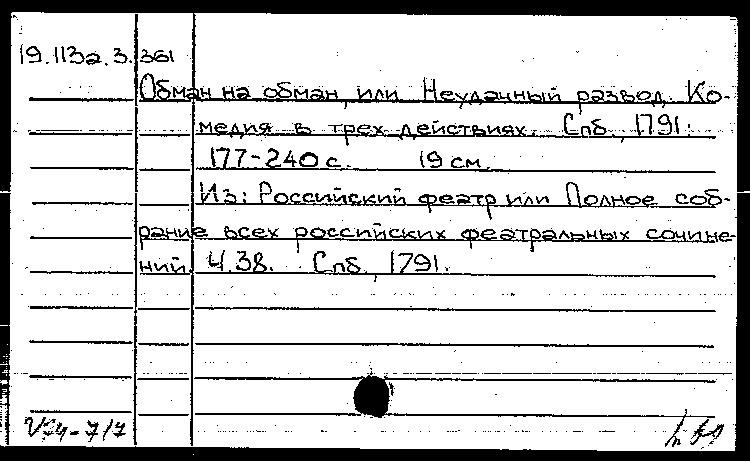 19.113а.3.361
Обман на обман, или Неудачный развод. Ко-
медия в трех действиях. Спб., 1791.
177-240 с. 19 см.
Из: Российский феатр или Полное соб-
рание всех российских феатральных сочине-
ний. Ч.38. Спб., 1791.
V74-7/7